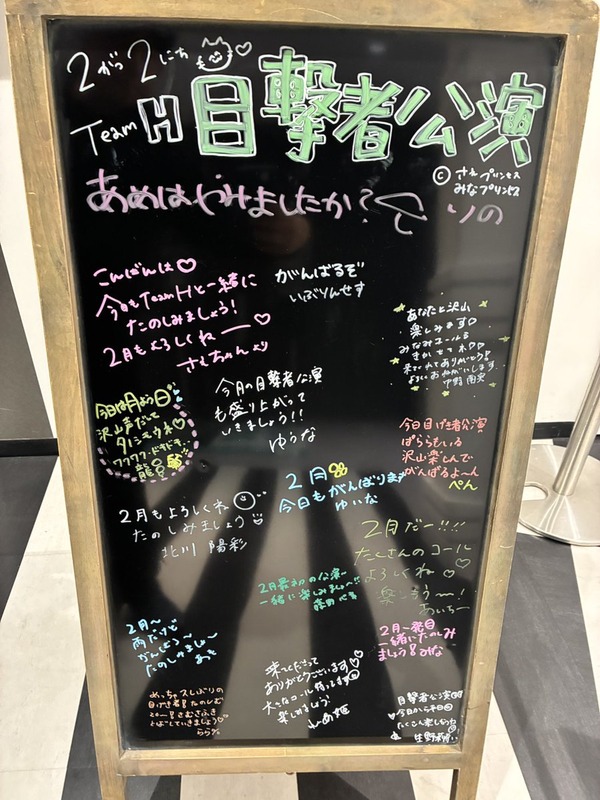 2がつ2にち
Team H 目撃者公演
© さえプリンセス
みなプリンセス
あめはやみましたか?
りの
こんばんは♡
今日もTeam Hと一緒に
たのしみましょう!
2月もよろしくねー♡
さえちゃんより
がんばるぞ
いぶりんせす
あなたと沢山
楽しみます♡
みなみコールも
きかせてネ♡♡
来てくれてありがとう!
よろしくおねがいします
今月の目撃者公演
も盛り上がって
いきましょう!!
ゆうな
今日は月よう日
沢山声だして
タノシモウネ♡
ワクワク・ドキドキ
今日目げき者公演
ぱららもいる
沢山楽しんで
がんばるよ〜ん
ぺん
2月
今日もがんばります
ゆいな
2月もよろしくね
たのしみましょう
北川 陽彩
2月だー!!!
たくさんのコール
よろしくね♡
楽しもう〜!
あいちー
2月最初の公演
一緒に楽しみましょ〜!!
2月〜
雨だけど
がんばろ〜
たのしみましょ〜
2月一発目
一緒にたのしみ
ましょう!みな
めっちゃ久しぶりの
目げき者!たのしむ
ぞー!さむさふき
とばしていきましょう♡
らら
来てくださって
ありがとうございます♡
大きなコール待ってます
楽しみましょう
目撃者公演
今日から平日
たくさん楽しもうね